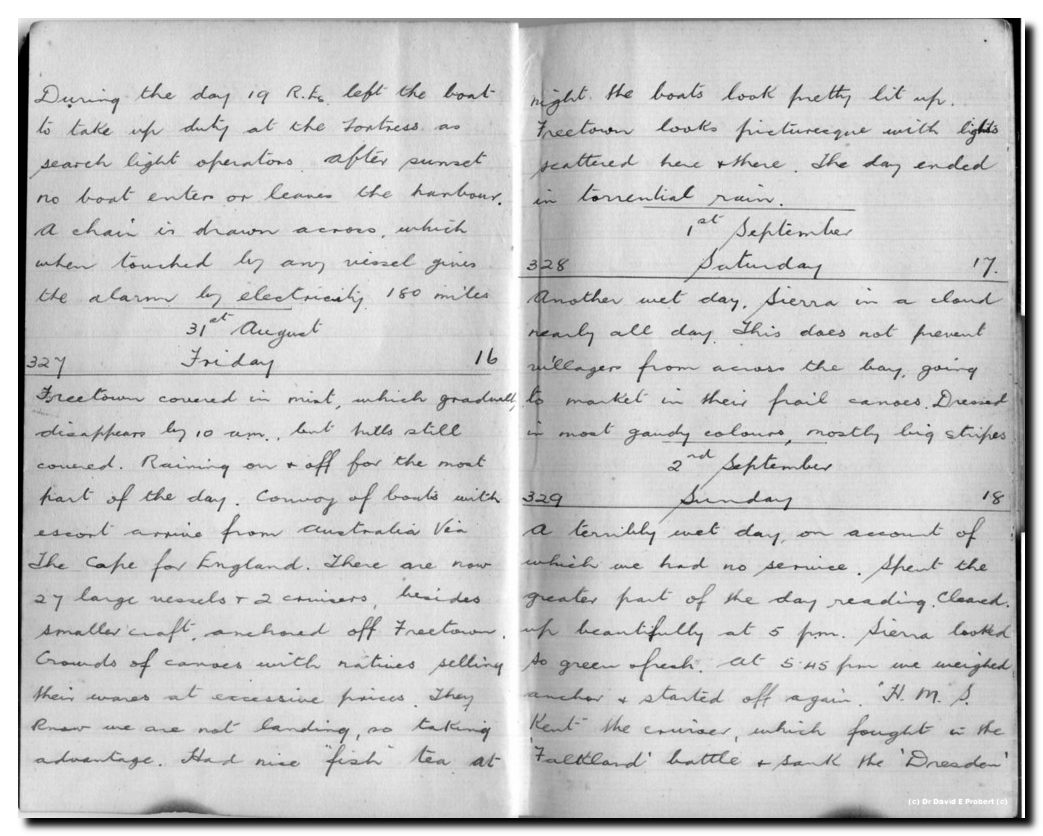 During the day 19 R.Es. left the boat
to take up duty at the Fortress as
search light operators. After sunset
no boat enters or leaves the harbour.
A chain is drawn across, which
when touched by any vessel gives
the alarm by electricity. 180 miles
31st August
327 Friday 16
Freetown covered in mist, which gradually
disappears by 10 a.m., but hills still
covered. Raining on & off for the most
part of the day. Convoy of boats with
escort arrive from Australia Via
The Cape for England. There are now
27 large vessels & 2 cruisers, besides
smaller craft, anchored off Freetown.
Crowds of canoes with natives selling
their wares at excessive prices. They
know we are not landing, so taking
advantage. Had nice "fish" tea at
night. The boats look pretty lit up.
Freetown looks picturesque with lights
scattered here & there. The day ended
in torrential rain.
1st September
328 Saturday 17.
Another wet day. Sierra in a cloud
nearly all day. This does not prevent
villagers from across the bay, going
to market in their frail canoes. Dressed
in most gaudy colours, mostly big stripes
2nd September
329 Sunday 18
A terribly wet day, on account of
which we had no service. Spent the
greater part of the day reading. Cleared
up beautifully at 5 p.m. Sierra looked
so green & fresh. At 5.45 pm we weighed
anchor & started off again. "H. M. S.
Kent" the cruiser, which fought in the
'Falkland' battle & sank the 'Dresden'
(c) Dr David E Probert (c)